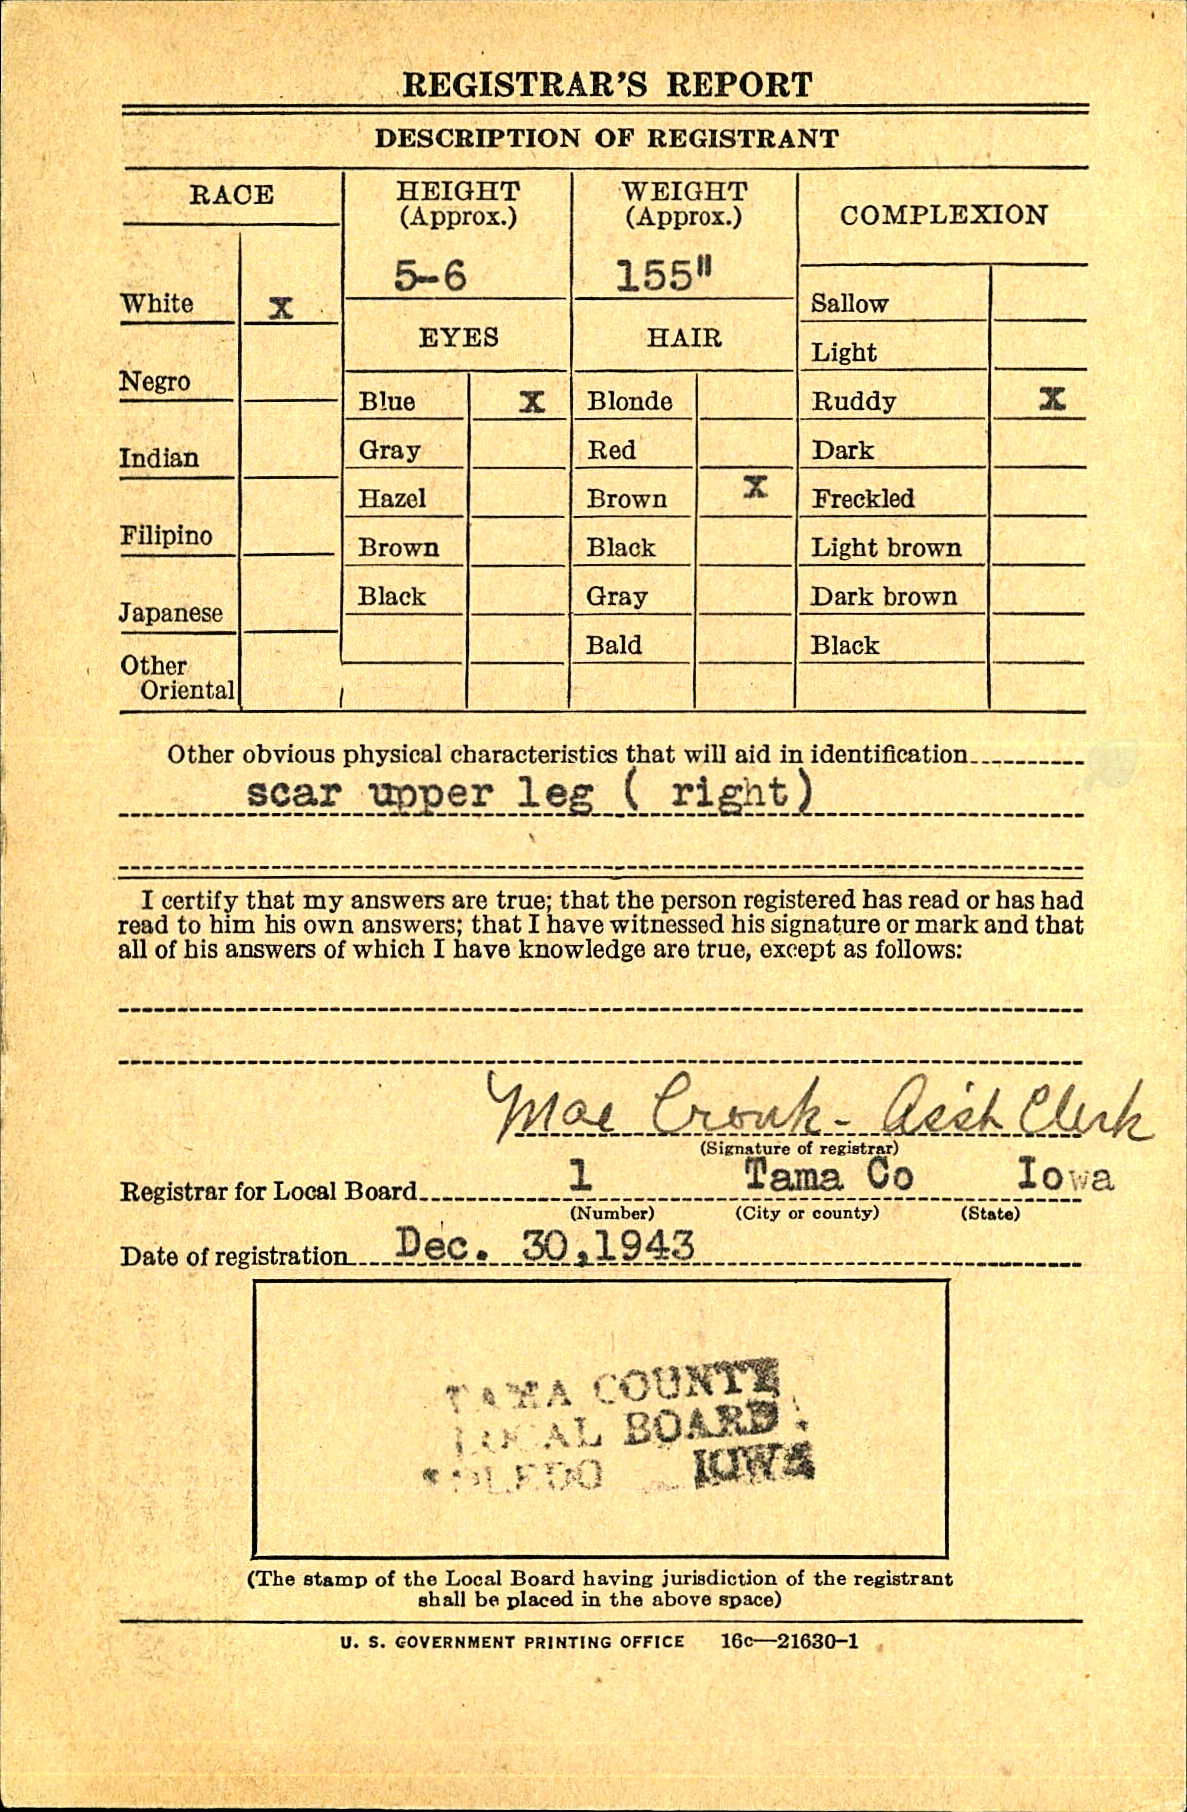 REGISTRAR'S REPORT
DESCRIPTION OF REGISTRANT
RACE
HEIGHT
(Approx.)
WEIGHT
(Approx.)
COMPLEXION
5-6
155"
White X
Sallow
EYES
HAIR
Light
Negro
Blue X
Blonde
Ruddy X
Indian
Gray
Red
Dark
Hazel
Brown X
Freckled
Filipino
Brown
Black
Light brown
Japanese
Black
Gray
Dark brown
Other
Oriental
Bald
Black
Other obvious physical characteristics that will aid in identification
scar upper leg ( right)
I certify that my answers are true; that the person registered has read or has had
read to him his own answers; that I have witnessed his signature or mark and that
all of his answers of which I have knowledge are true, except as follows:
Mae Cronk - Ass't Clerk
(Signature of registrar)
Registrar for Local Board 1 Tama Co Iowa
(Number) (City or county) (State)
Date of registration Dec. 30,1943
TAMA COUNTY
LOCAL BOARD
TOLEDO IOWA
(The stamp of the Local Board having jurisdiction of the registrant
shall be placed in the above space)
U. S. GOVERNMENT PRINTING OFFICE 16c—21630-1